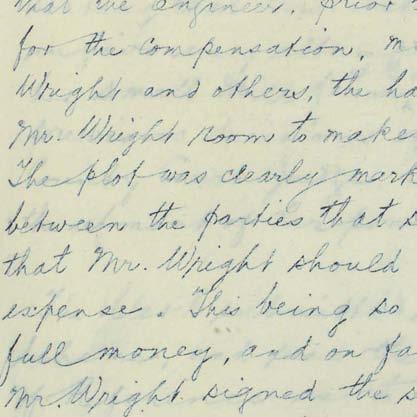 that the engineer, prior
for the compensation, M
Wright and others, the ha
Mr. Wright room to make
The plot was clearly mark
between the parties that s
that Mr. Wright should
expense. This being so
full money, and on fa
Mr. Wright signed the s